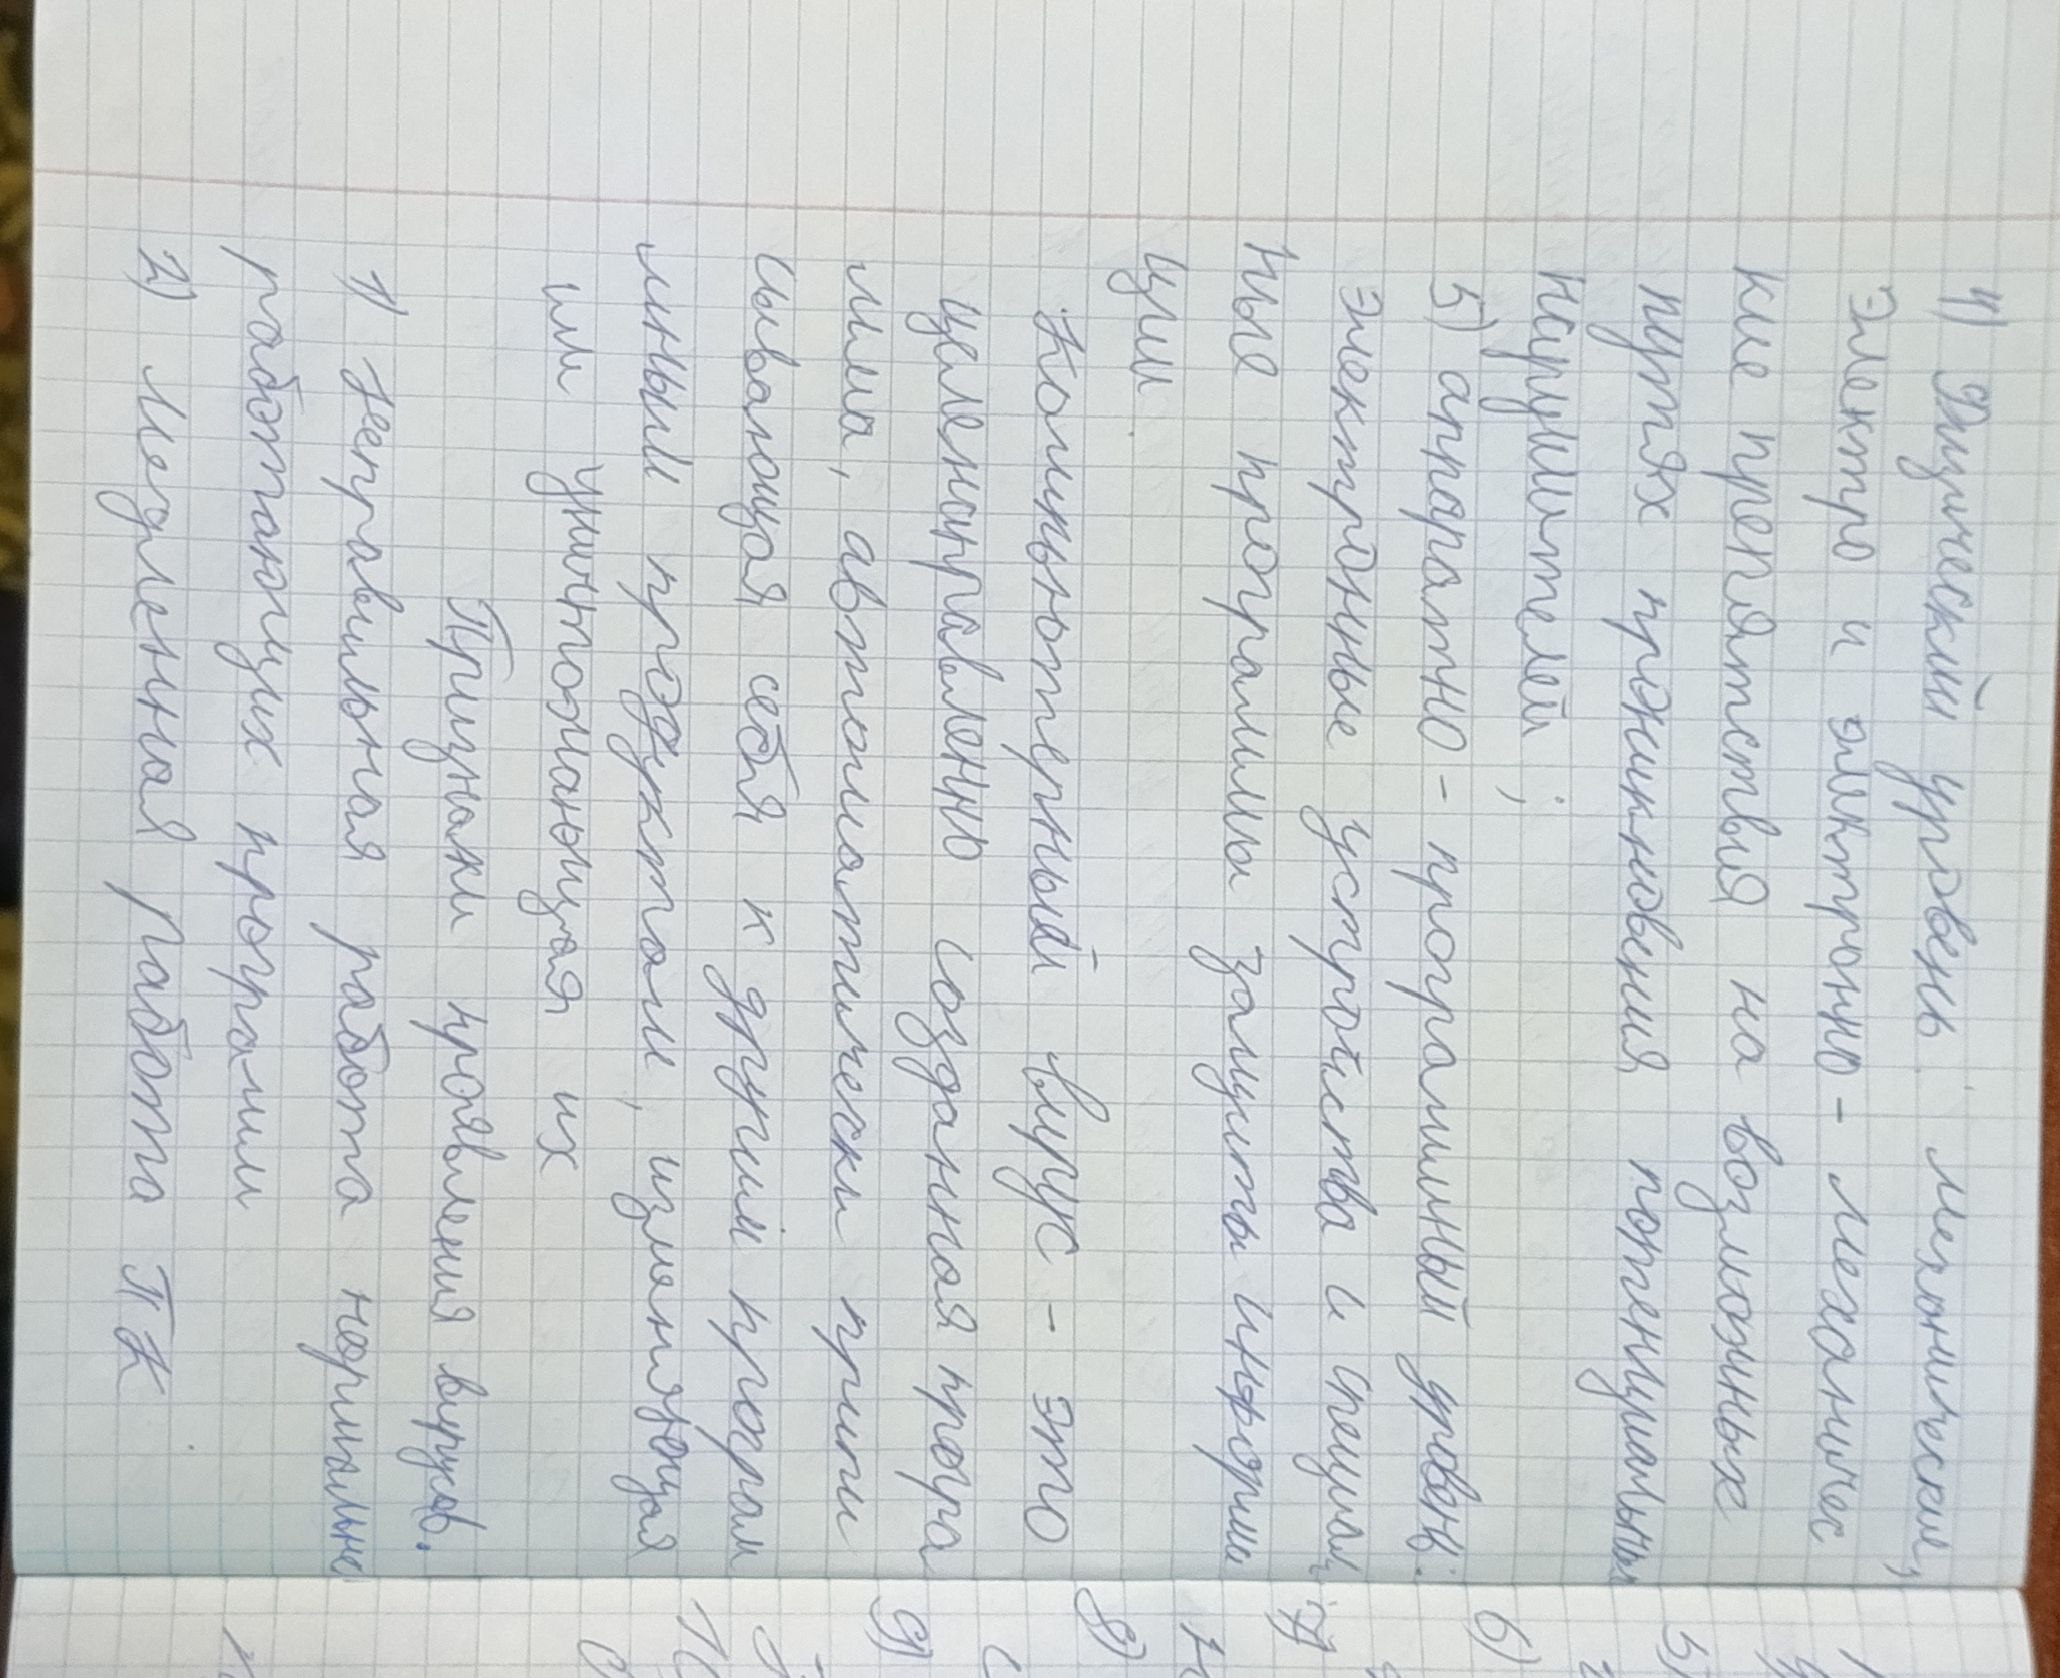 4) Физический уровень: механические,
электро и электронно- механичес
кие препятствия на возможных
путях проникновения потенциальных
нарушителей;
5) аппаратно- програмный уровень:
электронные устройства и специаль
ные программы защиты информа
ции.
Компьютерный вирус - это
целенаправленно созданная програ
мма, автоматически припи
сывающая себя к другим програм
мным продуктам, изменяющая
им уничтожающая их
Признаки проявления вирусов.
1) Неправильная работа нормально
работающих программ
2) Медленная работа ПК
5)
6)
7)
8)
9)